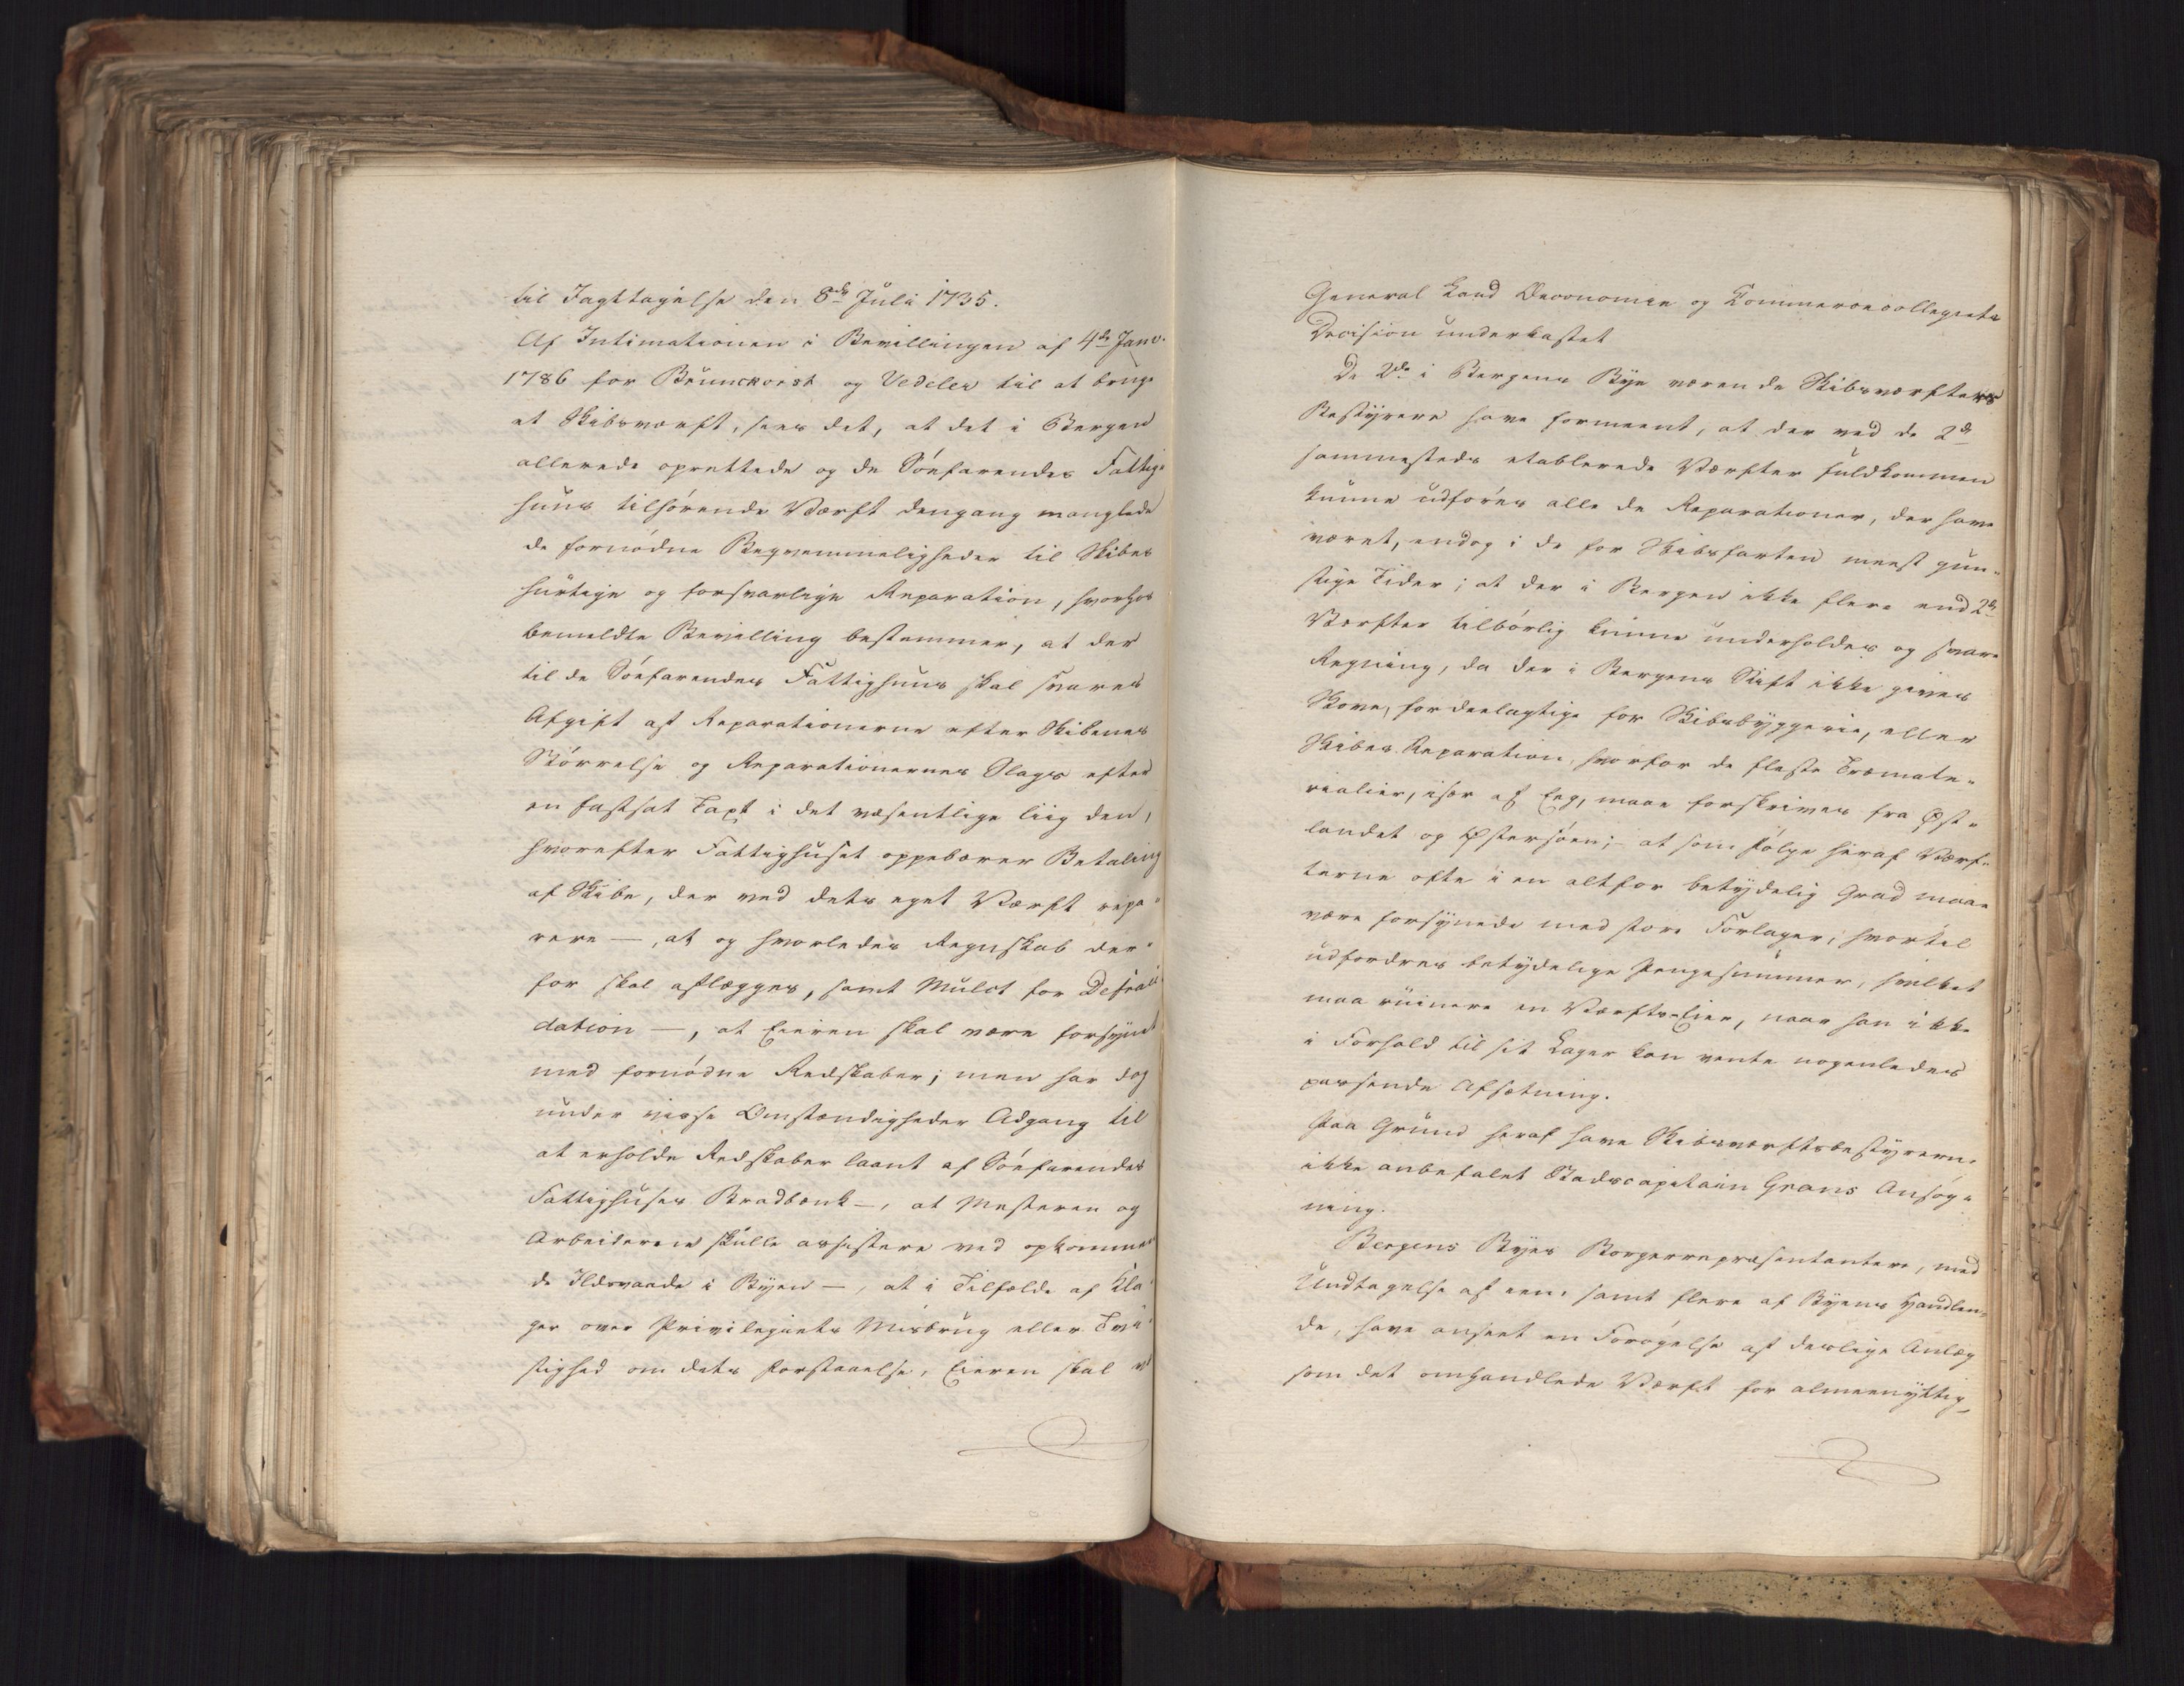 til Jagttagelse den 8de Juli 1735.
Af Intimationen i Bevillingen af 4de Janv.
1786 for Brunckorst og Vedeler til at bruge
et Skibsværft, sees det, at det i Bergen
allerede oprettede og de Söefarendes Fattig-
huus tilhørende Værft dengang manglede
de fornödne Beqvemmeligheder til Skibes
hurtige og forsvarlige Reparation, hvorhos
bemeldte Bevilling bestemmer, at der
til de Söefarendes Fattighuus skal svares
Afgift af Reparationerne efter Skibenes
Störrelse og Reparationernes Slags efter
en fastsat Taxt i det væsentlige liig den,
hvorefter Fattighuset oppebærer Betaling
af Skibe, der ved dets eget Værft repa-
rere —, at og hvorledes Regnskab der-
for skal aflægges, samt Mulct for Defrau-
dation —, at Eieren skal være forsynet
med fornödne Redskaber; men har dog
under visse Omstændigheder Adgang til
at erholde Redskaber laant af Söefarendes
Fattighuses Bradbænk —, at Mesteren og
Arbeiderne skulle assistere ved opkommen-
de Ildsvaade i Byen —, at i Tilfælde af Kla-
ger over Privilegiets Misbrug eller Tvi-
stighed om dets Forstaaelse, Eieren skal
General Land Oeconomie og Commercecollegiets
Decision underkastet
De 2de i Bergens Bye værende Skibsværfters
Bestyrere have formeent, at der ved de 2de
sammesteds etablerede Værfter fuldkommen
kunne udføres alle de Reparationer, der have
været, endog i de for Skibsfarten meest gun-
stige Tider; at der i Bergen ikke flere end 2de
Værfter tilbörlig kunne underholdes og svare
Regning, da der i Bergens Stift ikke gives
Skove, fordeelagtige for Skibsbyggerie, eller
Skibes Reparation, hvorfor de fleste Træmate-
rialier, især af Eeg, maae forskrives fra Øst-
landet og Østersöen; at som fölge heraf Værf-
terne ofte i en altfor betydelig Grad maae
være forsynede med store Forlager, hvortil
udfordres betydelige Pengesummer, hvilket
maa ruinere en Værfts-Eier, naar han ikke
i Forhold til sit Lager kan vente nogenledes
passende Afsætning.
Paa Grund heraf have Skibsværftsbestyrerne
ikke anbefalet Stadscapitain Grans Ansög-
ning.
Bergens Byes Borgerrepræsentantere, med
Undtagelse af een, samt flere af Byens Handlen-
de, have anseet en Forögelse af deslige Anlæg
som det omhandlede Værft for almeennyttig,